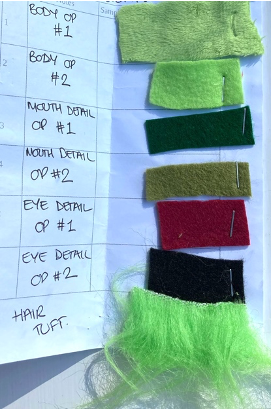 BODY OP
#1
BODY OP
#2
MOUTH DETAIL
OP #1
MOUTH DETAIL
OP #2
EYE DETAIL
OP #1
EYE DETAIL
OP #2
HAIR
TUFT.